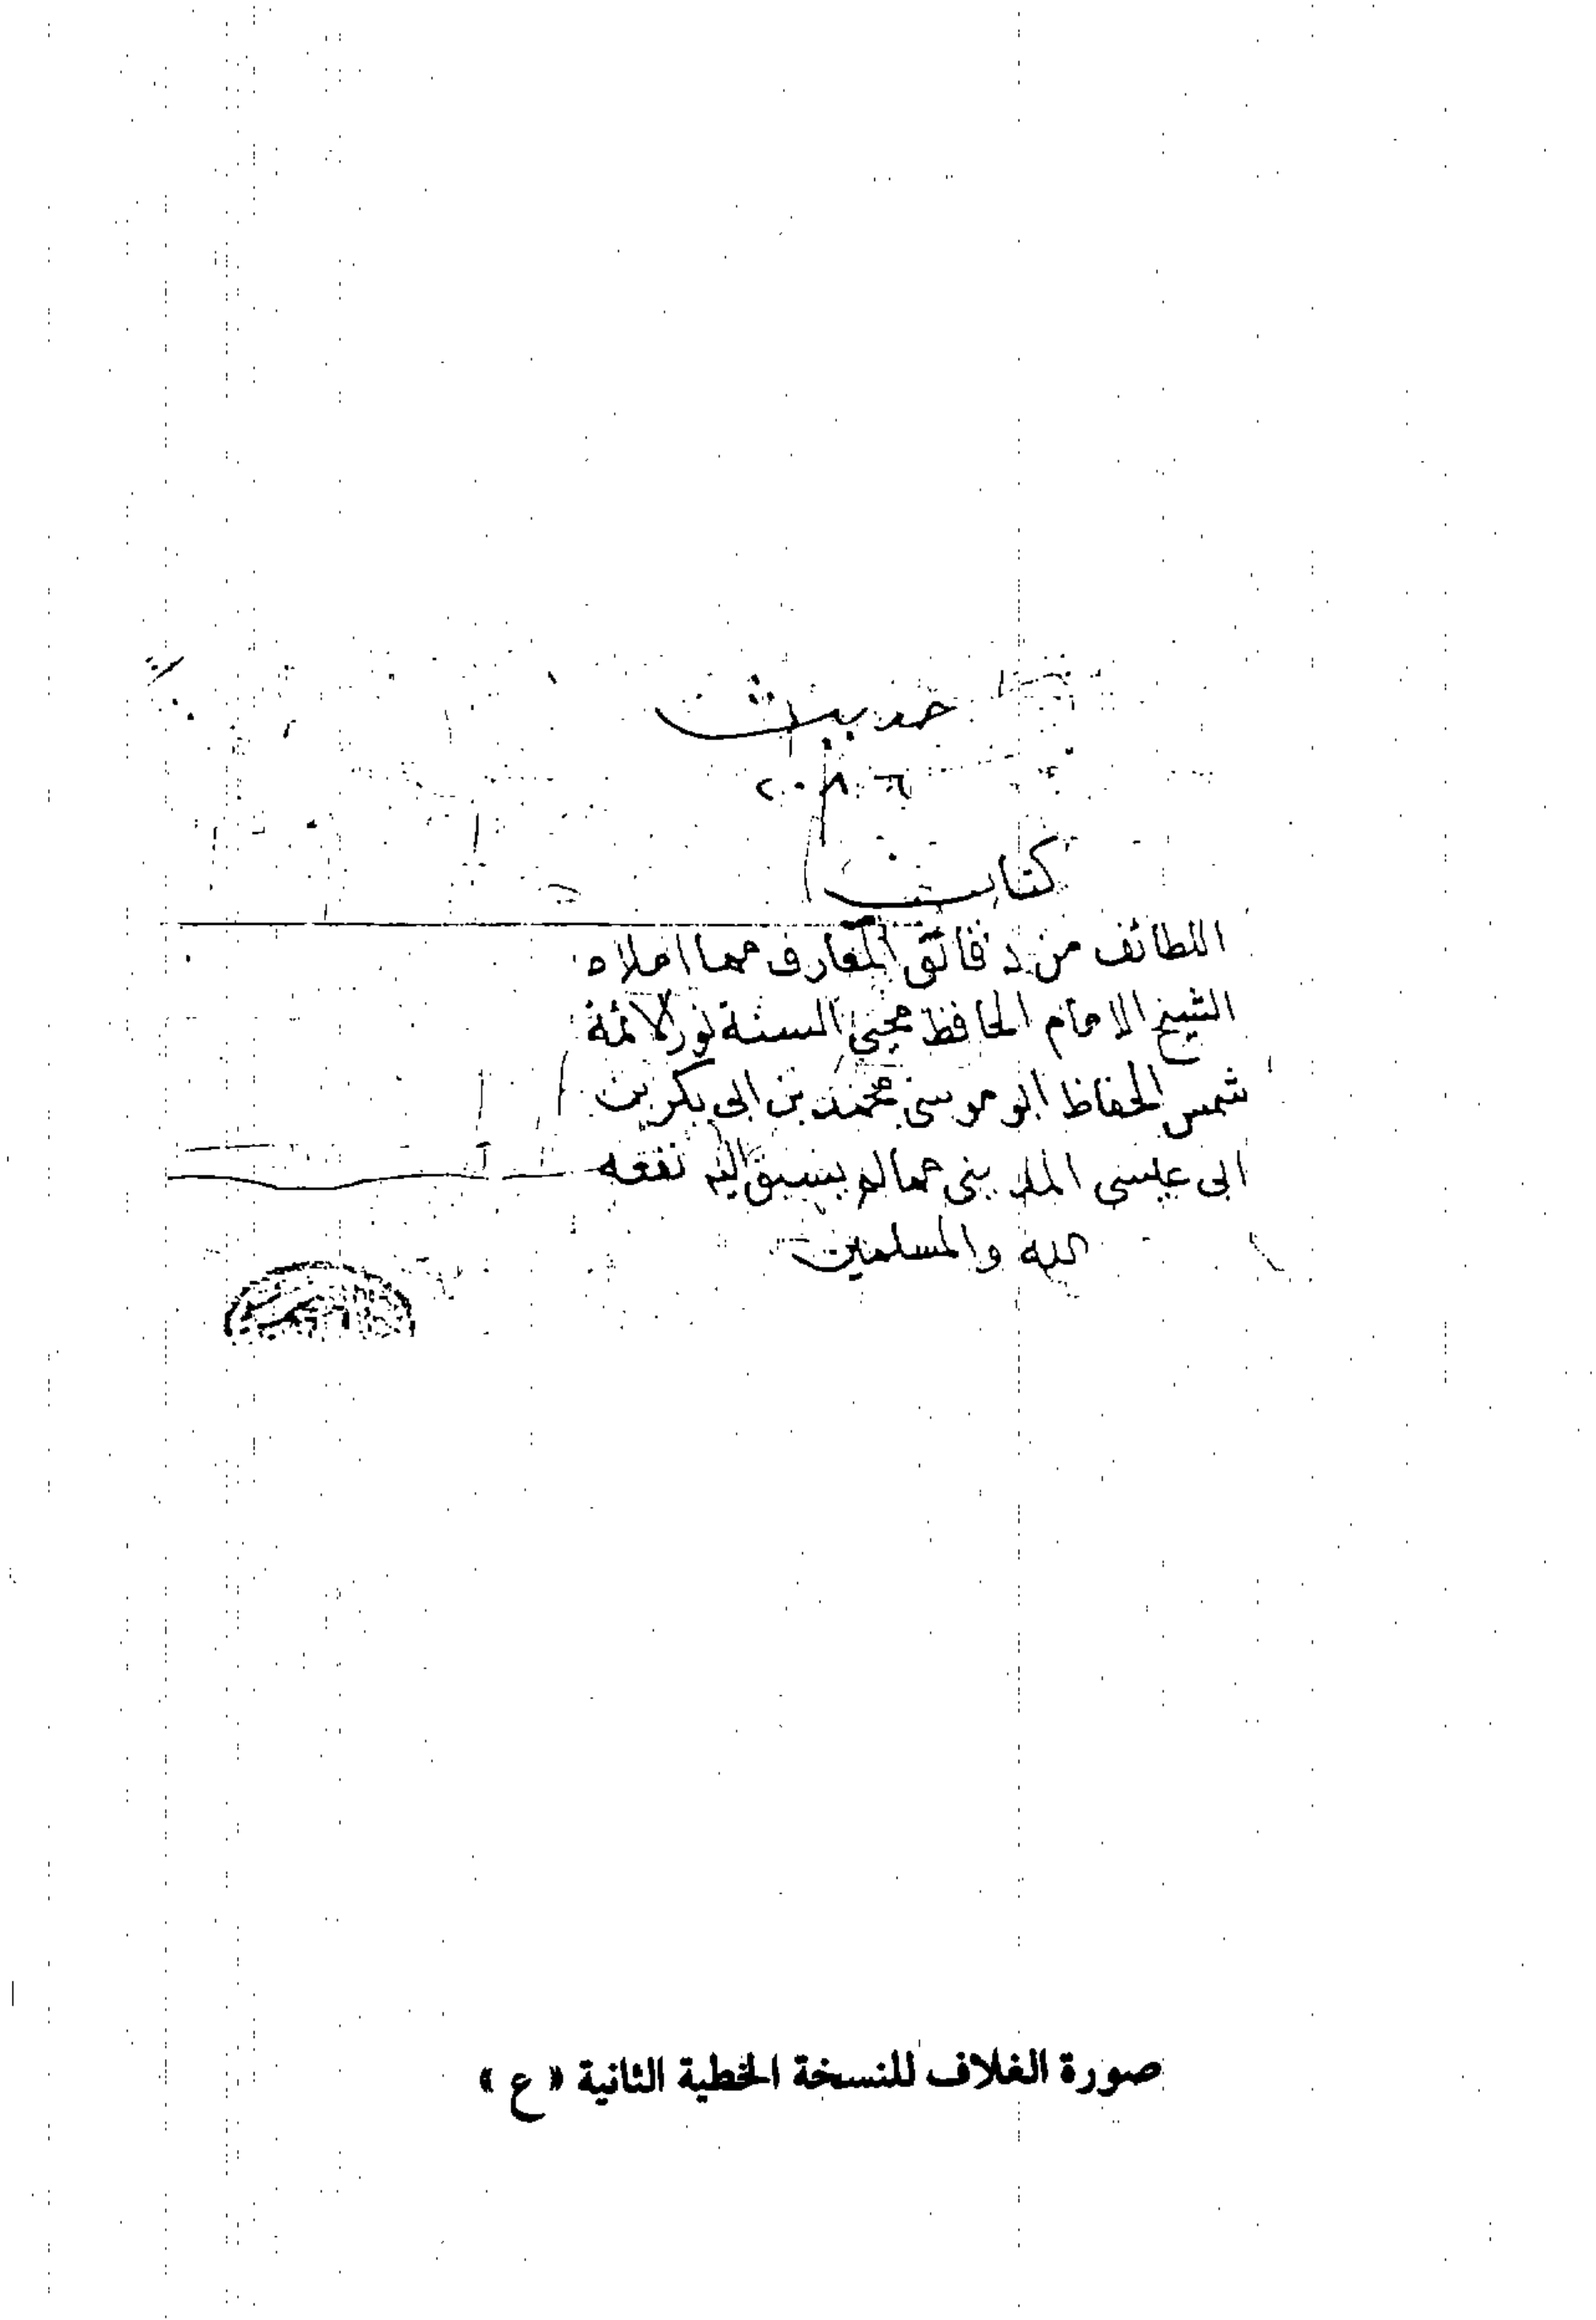 حديث
٢٠٨٠٦
كتاب
اللطائف من دقائق المعارف مما املاه
الشيخ الامام الحافظ محيي السنة نور الائمة
شمس الحفاظ ابو موسى محمد بن ابى بكر بن
ابى عيسى المدينى مما لم يسبق اليه نفعه
الله والمسلمين
صورة الغلاف للنسخة الخطية الثانية « ع »